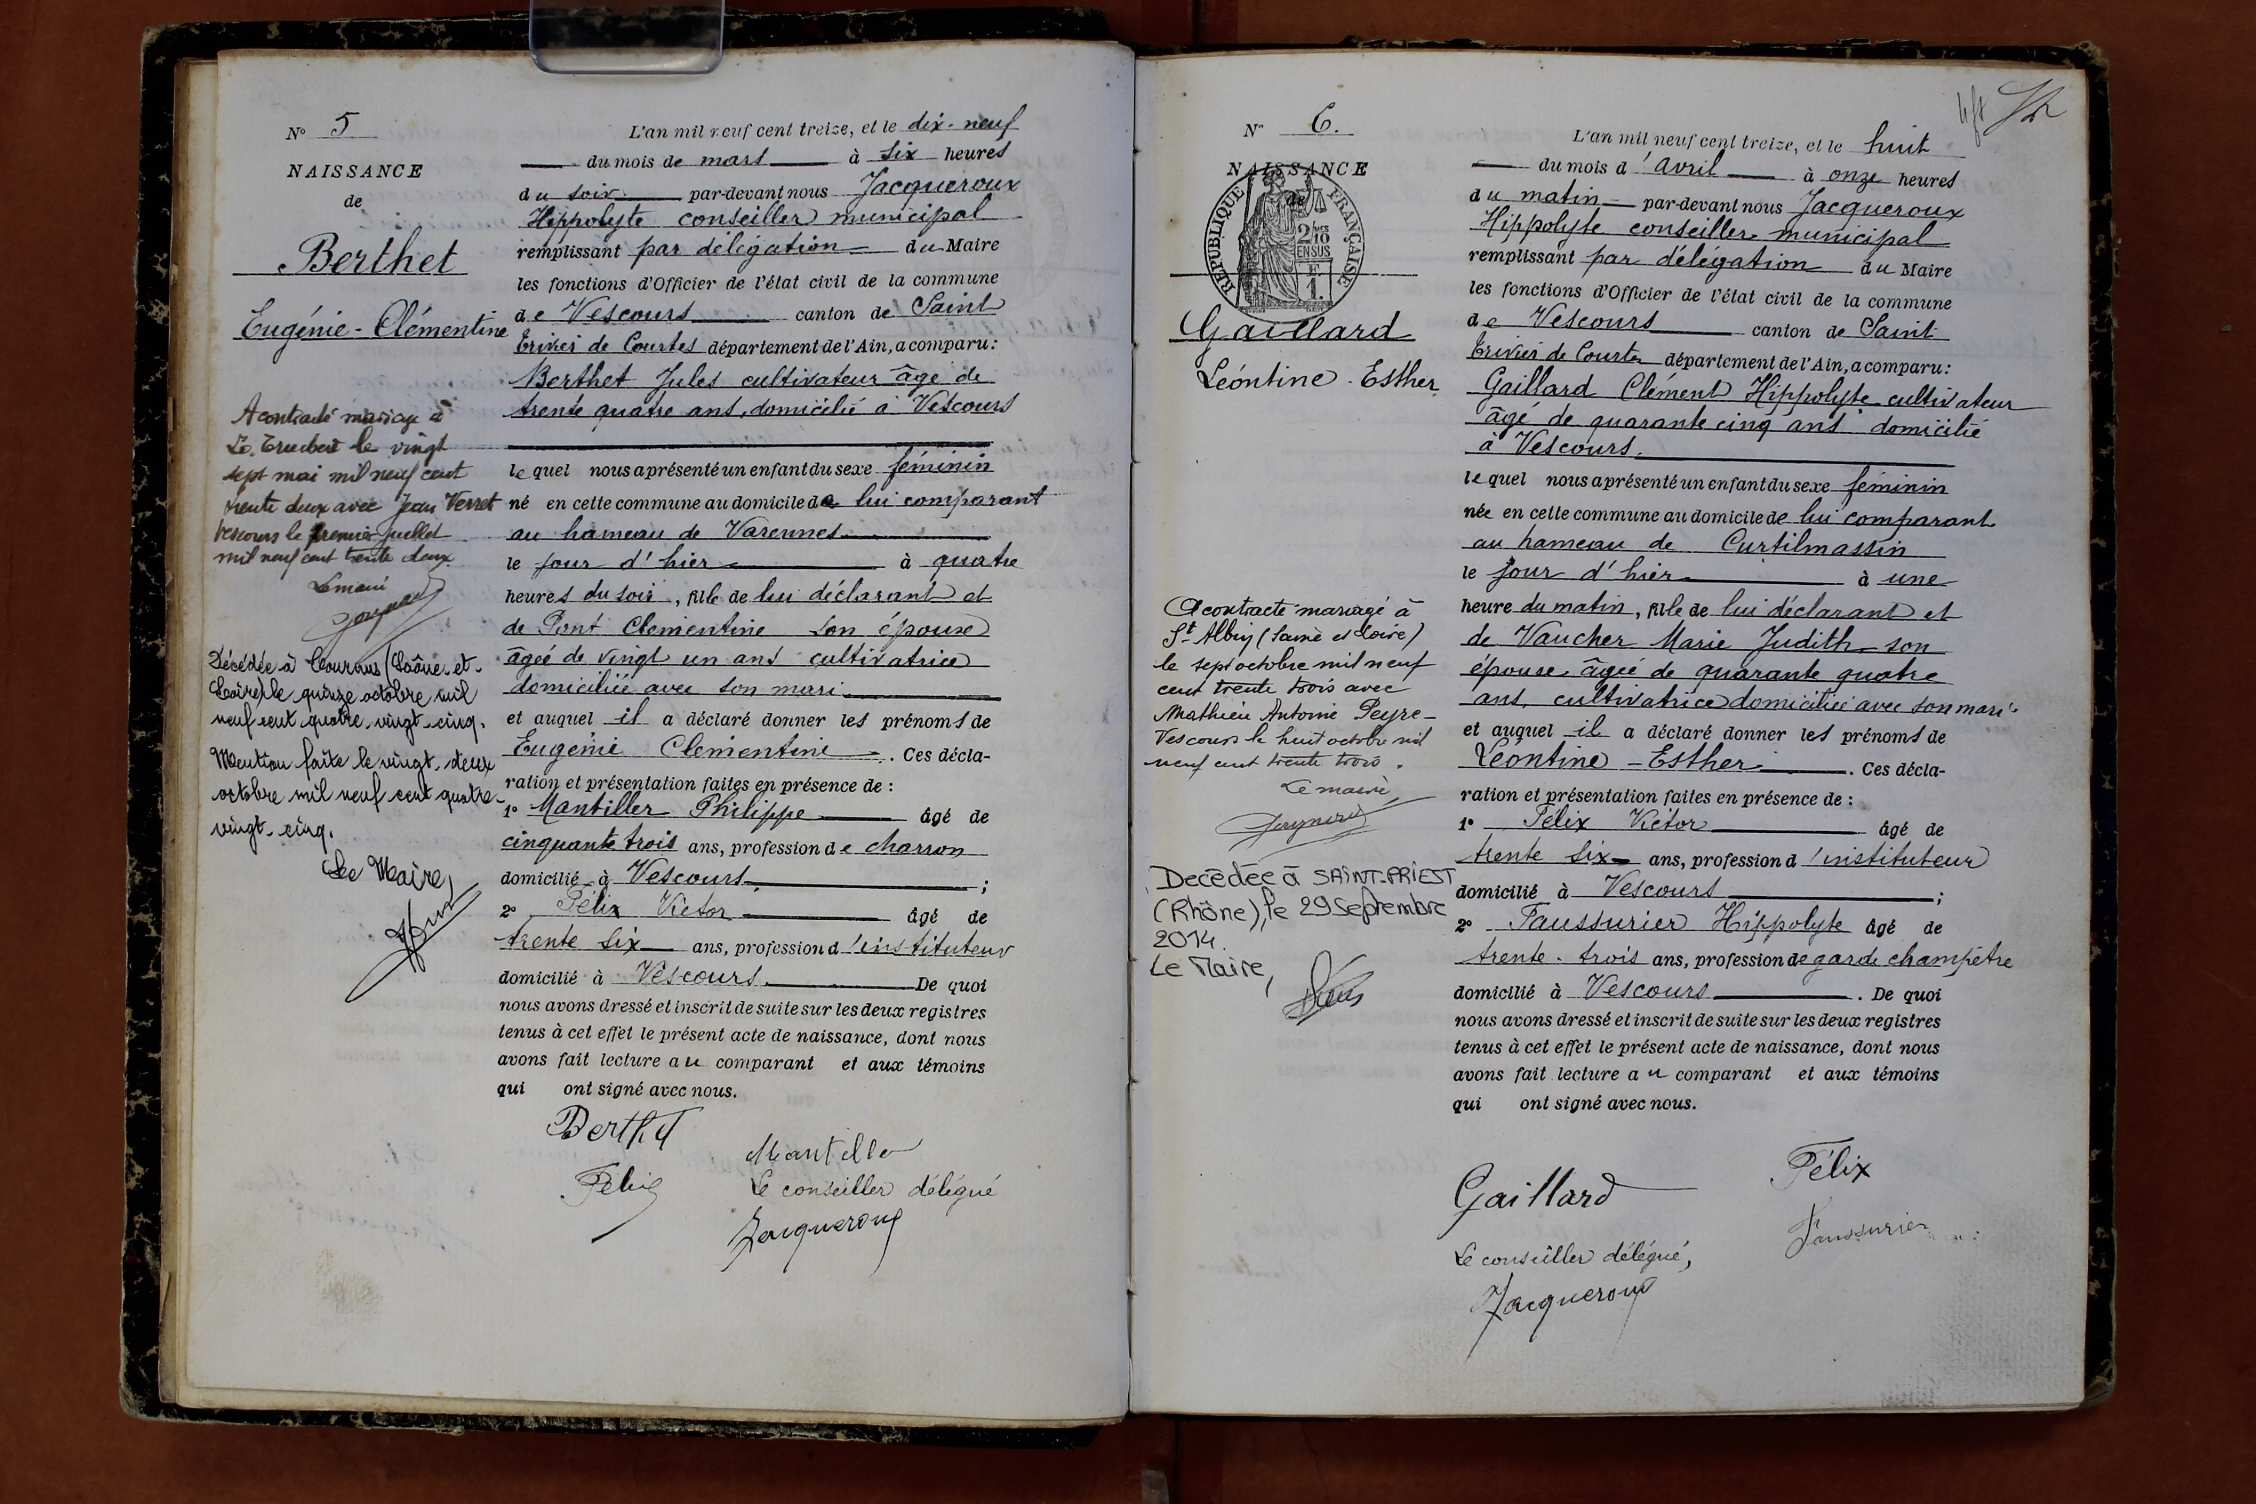 N° 5
NAISSANCE
de
Berthet
Eugénie - Clémentine
A contracté mariage à
Le Truchère le vingt
sept mai mil neuf cent
trente deux avec Jean Verret
Vescours le premier juillet
mil neuf cent trente deux
Le maire
Décédée à Tournus (Saône-et-
Loire) le quinze octobre mil
neuf cent quatre-vingt-cinq.
Mention faite le vingt-deux
octobre mil neuf cent quatre-
vingt-cinq.
Le Maire,
L'an mil neuf cent treize, et le dix-neuf
du mois de mars à six heures
du soir par-devant nous Jacqueroux
Hippolyte conseiller municipal
remplissant par délégation du Maire
les fonctions d'Officier de l'état civil de la commune
de Vescours canton de Saint
Trivier de Courtes département de l'Ain, a comparu:
Berthet Jules cultivateur âgé de
trente quatre ans, domicilié à Vescours
lequel nous a présenté un enfant du sexe féminin
né en cette commune au domicile de lui comparant
au hameau de Varennes
le jour d'hier à quatre
heures du soir, fille de lui déclarant et
de Pont Clementine son épouse
âgée de vingt un ans cultivatrice
domiciliée avec son mari
et auquel il a déclaré donner les prénoms de
Eugénie Clementine. Ces décla-
ration et présentation faites en présence de :
1° Mantiller Philippe âgé de
cinquante trois ans, profession de charron
domicilié à Vescours ;
2° Félix Victor âgé de
trente six ans, profession d'instituteur
domicilié à Vescours De quoi
nous avons dressé et inscrit de suite sur les deux registres
tenus à cet effet le présent acte de naissance, dont nous
avons fait lecture au comparant et aux témoins
qui ont signé avec nous.
Berthet
Mantiller
Félix
Le conseiller délégué
Jacqueroux
N° 6.
NAISSANCE
de
RÉPUBLIQUE FRANÇAISE
2/10
EN SUS
F.
1.
Gaillard
Léontine - Esther
A contracté mariage à
St Albin (Saône et Loire)
le sept octobre mil neuf
cent trente trois avec
Mathieu Antoine Peyre-
Vescours le huit octobre mil
neuf cent trente trois.
Le maire,
Decédée à SAINT-PRIEST
(Rhône), le 29 Septembre
2014.
Le Maire,
L'an mil neuf cent treize, et le huit
du mois d'avril à onze heures
du matin par-devant nous Jacqueroux
Hippolyte conseiller municipal
remplissant par délégation du Maire
les fonctions d'Officier de l'état civil de la commune
de Vescours canton de Saint
Trivier de Courtes département de l'Ain, a comparu:
Gaillard Clément Hippolyte cultivateur
âgé de quarante cinq ans domicilié
à Vescours.
lequel nous a présenté un enfant du sexe féminin
née en cette commune au domicile de lui comparant
au hameau de Curtilmassin
le jour d'hier à une
heure du matin, fille de lui déclarant et
de Vaucher Marie Judith son
épouse âgée de quarante quatre
ans, cultivatrice domiciliée avec son mari
et auquel il a déclaré donner les prénoms de
Léontine - Esther. Ces décla-
ration et présentation faites en présence de :
1° Félix Victor âgé de
trente six ans, profession d'instituteur
domicilié à Vescours ;
2° Faussurier Hippolyte âgé de
trente-trois ans, profession de garde champêtre
domicilié à Vescours. De quoi
nous avons dressé et inscrit de suite sur les deux registres
tenus à cet effet le présent acte de naissance, dont nous
avons fait lecture au comparant et aux témoins
qui ont signé avec nous.
Félix
Gaillard
Faussurier
Le conseiller délégué,
Jacqueroux